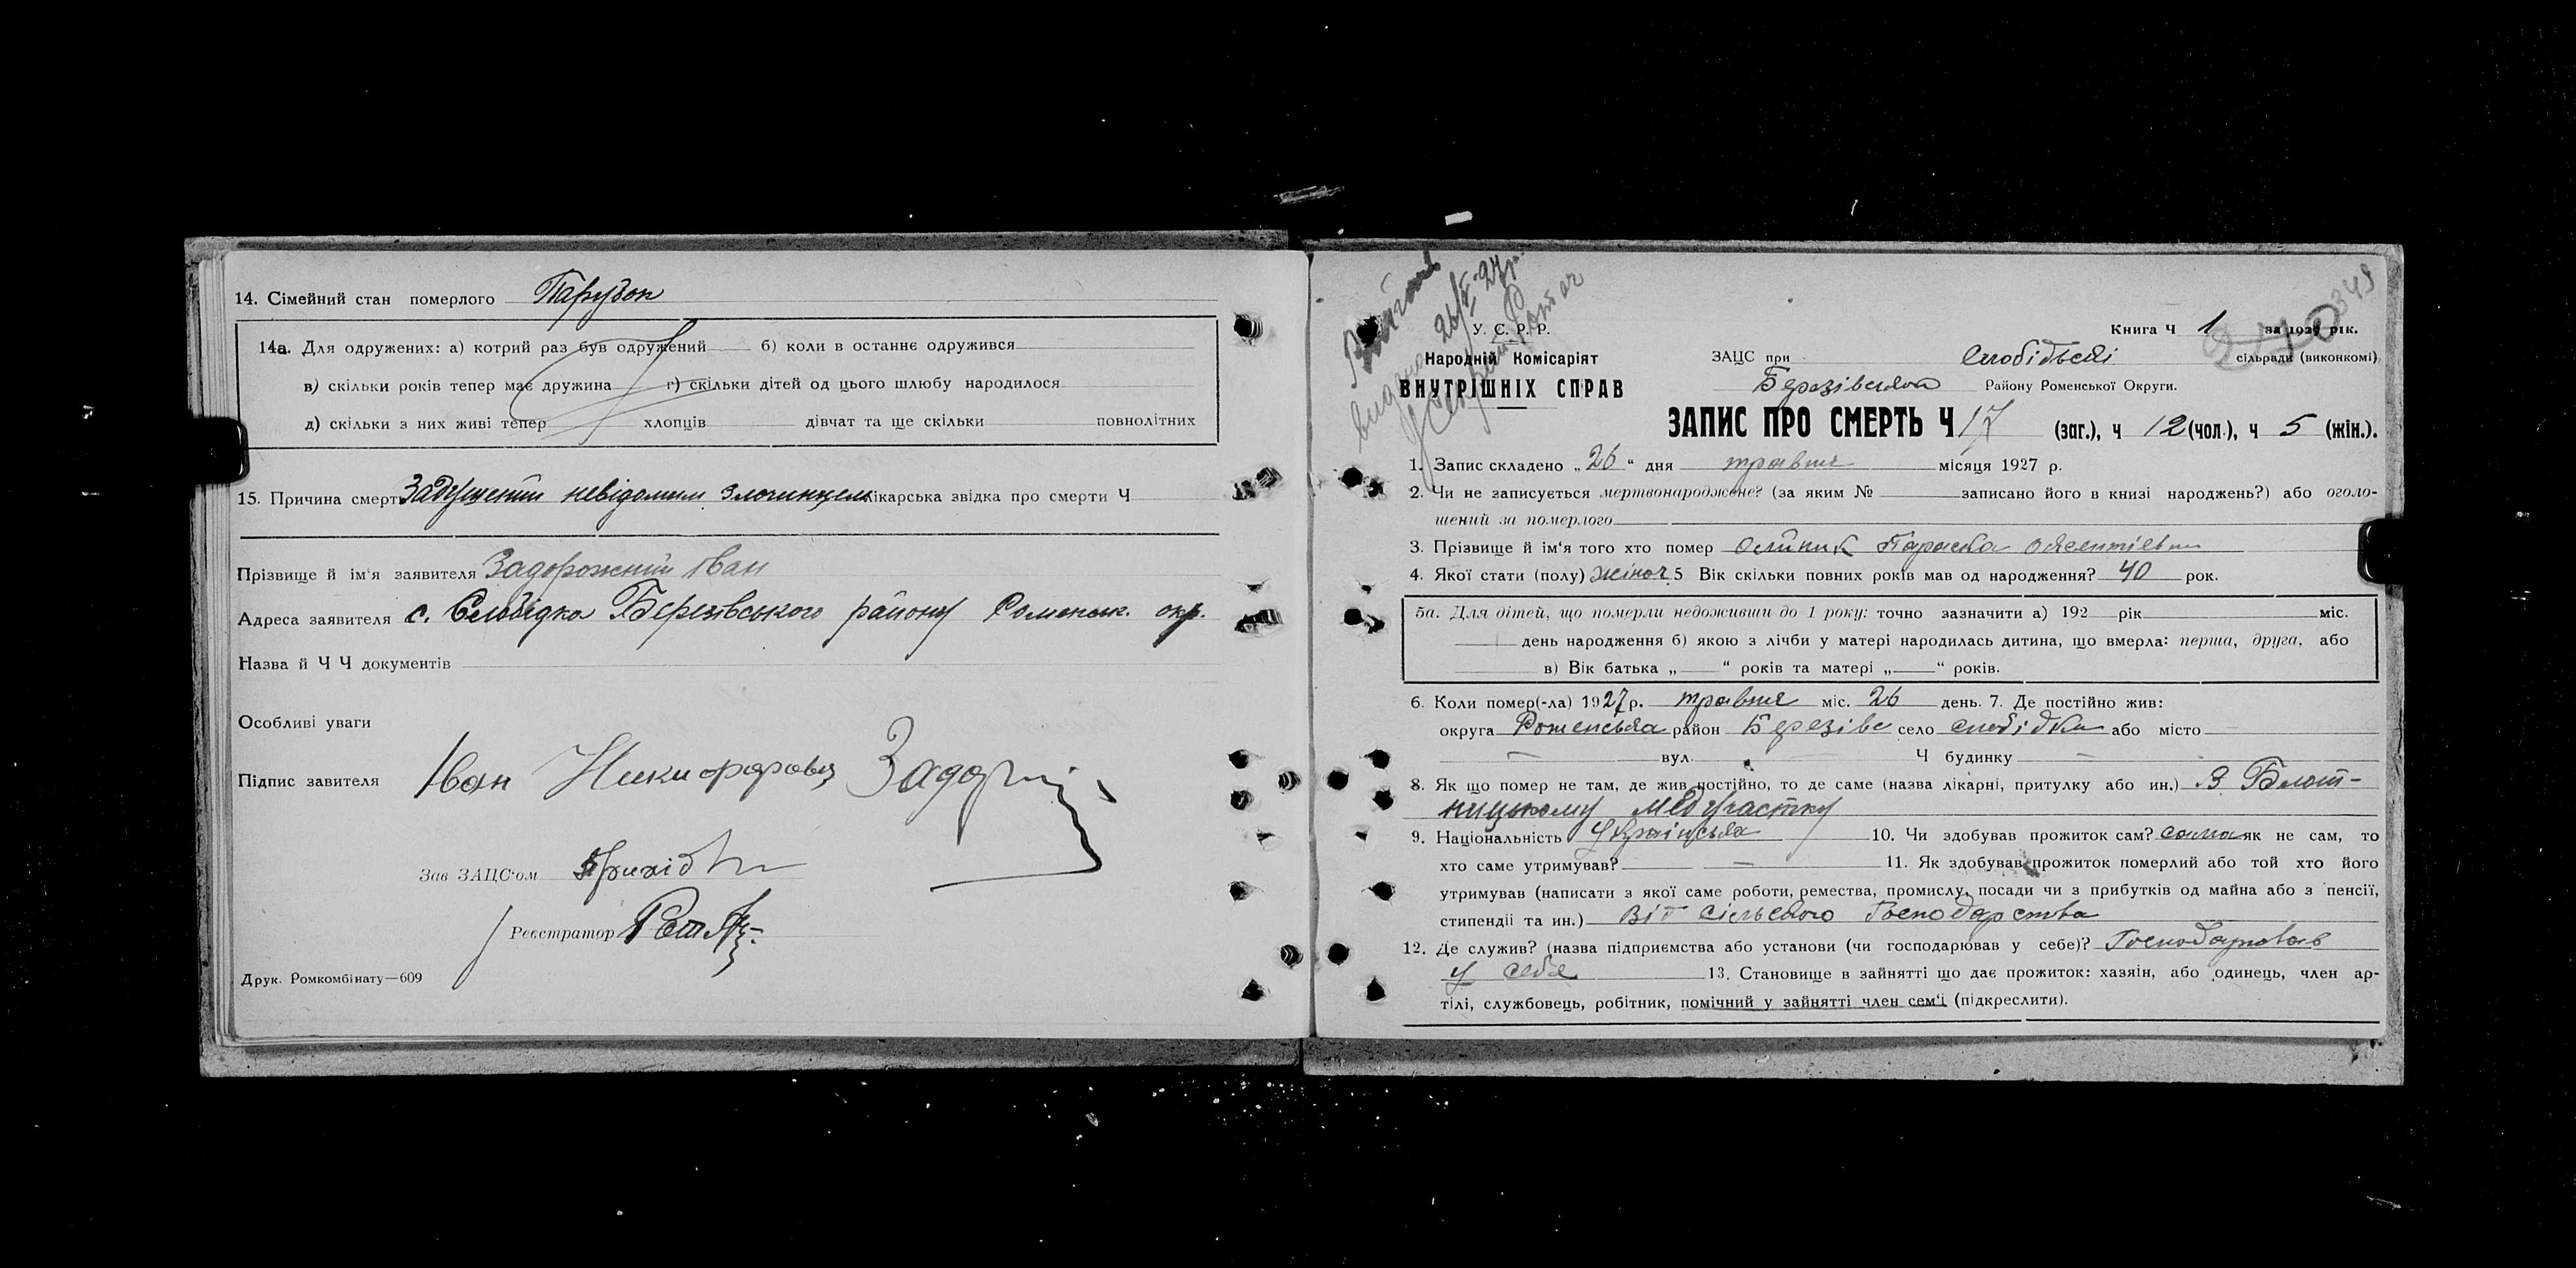 14. Сімейний стан померлого Парубок
14а. Для одружених: а) котрий раз був одружений б) коли в останнє одружився
в) скільки років тепер має дружина г) скільки дітей од цього шлюбу народилося
д) скільки з них живі тепер хлопців дівчат та ще скільки повнолітних
15. Причина смерт Задушений невідомим злочинцем лікарська звідка про смерти Ч
Прізвище й ім'я заявителя Задорожний Іван
Адреса заявителя с. Слобідка Березівського району Роменськ. окр.
Назва й Ч Ч документів
Особливі уваги
Підпис завителя Іван Никифорович
Зав ЗАЦС'ом
Реєстратор
Друк. Ромкомбінату—609
349
240
26/V 27 р.
У. С. Р. Р.
Народній Комісаріят
ВНУТРІШНІХ СПРАВ
Книга Ч 1 за 1927 рік.
ЗАЦС при Слобідські сільради (виконкомі)
Березівського Району Роменської Округи.
ЗАПИС ПРО СМЕРТЬ Ч 17 (заг.), ч 12 (чол.), ч 5 (жін.).
1. Запис складено „26“ дня травня місяця 1927 р.
2. Чи не записується мертвонароджене? (за яким № записано його в книзі народжень?) або оголо-
шений за померлого
3. Прізвище й ім'я того хто помер Олійник Параска
4. Якої стати (полу) жіноч. 5 Вік скільки повних років мав од народження? 40 рок.
5а. Для дітей, що померли недоживши до 1 року: точно зазначити а) 192 рік міс.
день народження б) якою з лічби у матері народилась дитина, що вмерла: перша, друга, або
в) Вік батька „ “ років та матері „ “ років.
6. Коли помер(-ла) 1927 р. травня міс. 26 день. 7. Де постійно жив:
округа Роменська район Березівс село Слобідка або місто
вул. Ч будинку
8. Як що помер не там, де жив постійно, то де саме (назва лікарні, притулку або ин.) В Блот-
ницькому Медучастку
9. Національність Українська 10. Чи здобував прожиток сам? сама як не сам, то
хто саме утримував? — 11. Як здобував прожиток померлий або той хто його
утримував (написати з якої саме роботи, ремества, промислу, посади чи з прибутків од майна або з пенсії,
стипендії та ин.) Від сільського Господарства
12. Де служив? (назва підприємства або установи (чи господарював у себе)? Господарював
у себе 13. Становище в зайнятті що дає прожиток: хазяїн, або одинець, член ар-
тілі, службовець, робітник, помічний у зайнятті член сем'ї (підкреслити).